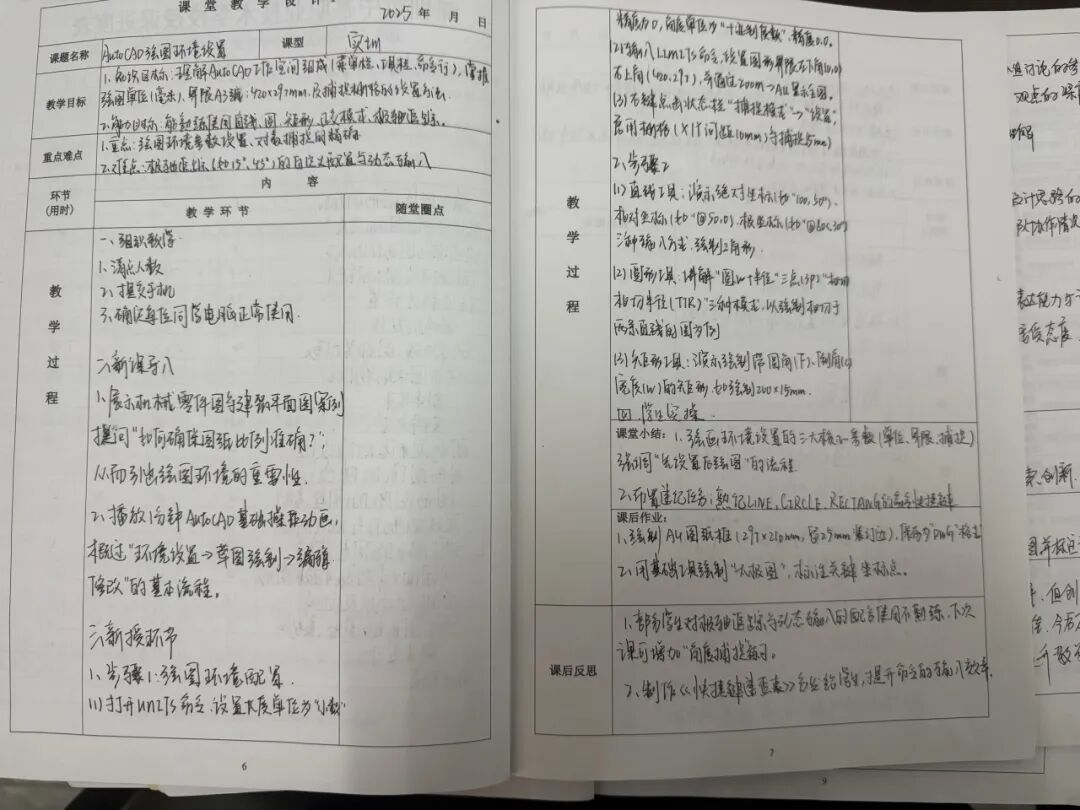 课堂教学设计
2025年 月 日
课题名称 AutoCAD绘图环境设置 课型 实训
教学目标
1.知识目标:理解AutoCAD工作空间组成(菜单栏、工具栏、命令行),掌握
绘图单位(毫米)、界限A3端:420×297mm,及捕捉栅格的设置方法.
2.能力目标:能熟练使用直线、圆、矩形、正交模式、极轴追踪.
重点难点
1.重点:绘图环境参数设置、对象捕捉的精确
2.难点:极轴追踪(如15°、45°)的自定义配置与动态输入
环节
(用时)
内 容
教学环节 随堂圈点
教学过程
一、组织教学
1、清点人数
2、提交手机
3、确保每位同学电脑正常使用.
二、新课导入
1、展示机械零件图与建筑平面图案例
提问“如何确保图纸比例准确?”,
从而引出绘图环境的重要性.
2、播放1分钟AutoCAD基础操作动画,
概述“环境设置→草图绘制→编辑
修改”的基本流程.
三、新授环节
1、步骤1:绘图环境配置
(1)打开UNITS命令,设置长度单位为“小数”
6
精度0.0,角度单位为“十进制度数”,精度0.0.
(2)输入LIMITS命令,设置图形界限左下角(0,0)
右上角(420,297),并通过ZOOM→All显示全图.
(3)右键点击状态栏“捕捉模式”→“设置”,
启用栅格(X|Y间距10mm)与捕捉(5mm)
2、步骤2
(1)直线工具:演示绝对坐标(如“100,50”)、
相对坐标(如“@50,0)、极坐标(如“@60<30”)
三种输入方式,绘制三角形.
(2)圆形工具:讲解“圆心+半径”“三点(3P)”“相切
相切半径(TTR)”三种模式,以绘制相切于
两条直线的圆为例
(3)矩形工具:演示绘制带圆角(F)、倒角(C)
宽度(W)的矩形,如绘制200×15mm.
四、学生实操
教学过程
课堂小结:1、绘画环境设置的三大核心参数(单位、界限、捕捉)
强调“先设置后绘图”的流程
2、布置速记任务:熟记LINE、CIRCLE、RECTANG的命令快捷键
课后作业:
1、绘制A4图纸框(297×210mm,留25mm装订边),保存为“DWG”格式
2、用基础工具绘制“太极图”,标注关键坐标点.
课后反思
1、部分学生对极轴追踪与动态输入的配合使用不熟练,下次
课可增加“角度捕捉练习.
2、制作《快捷键速查表》分发给学生,提升命令的输入效率.
7
9